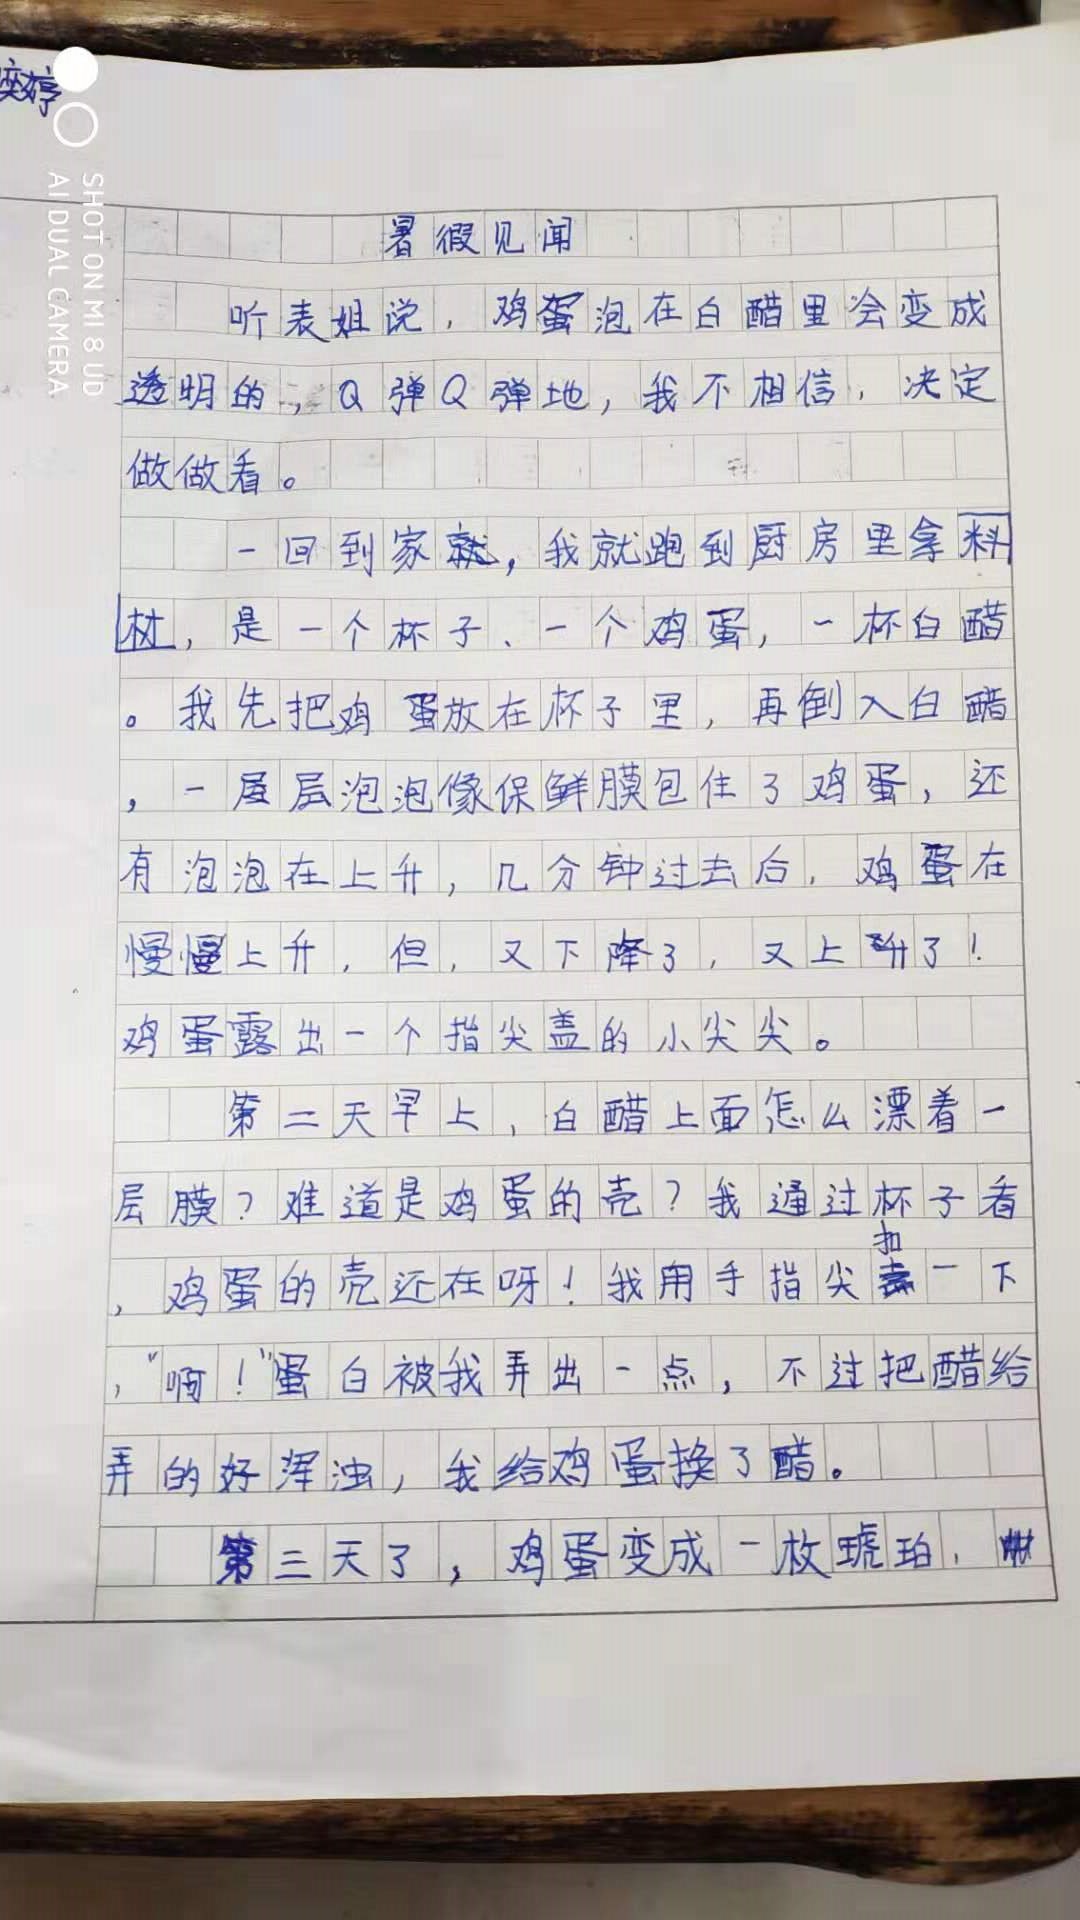 奕婷
SHOT ON MI 8 UD
AI DUAL CAMERA
暑假见闻
听表姐说，鸡蛋泡在白醋里会变成
透明的，Q弹Q弹地，我不相信，决定
做做看。
一回到家就，我就跑到厨房里拿料
材，是一个杯子、一个鸡蛋，一杯白醋
。我先把鸡蛋放在杯子里，再倒入白醋
，一层层泡泡像保鲜膜包住了鸡蛋，还
有泡泡在上升，几分钟过去后，鸡蛋在
慢慢上升，但，又下降了，又上升了！
鸡蛋露出一个指尖盖的小尖尖。
第二天早上，白醋上面怎么漂着一
层膜？难道是鸡蛋的壳？我通过杯子看
，鸡蛋的壳还在呀！我用手指尖扣一下
，“啊！”蛋白被我弄出一点，不过把醋给
弄的好浑浊，我给鸡蛋换了醋。
第三天了，鸡蛋变成一枚琥珀，